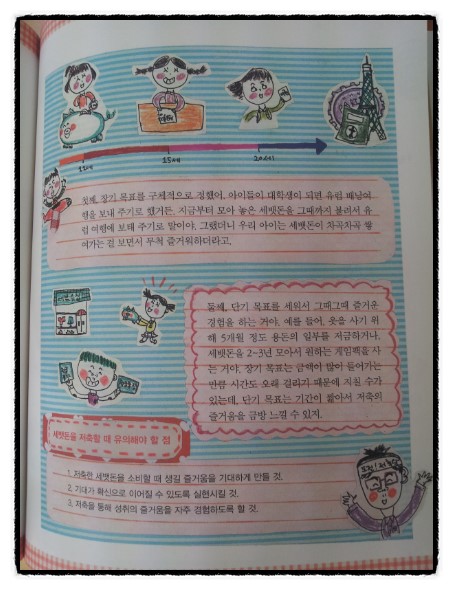 11세 15세 20세
첫째, 장기 목표를 구체적으로 정했어. 아이들이 대학생이 되면 유럽 배낭여
행을 보내 주기로 했거든. 지금부터 모아 놓은 세뱃돈을 그때까지 불려서 유
럽 여행에 보태 주기로 말이야. 그랬더니 우리 아이는 세뱃돈이 차곡차곡 쌓
여가는 걸 보면서 무척 즐거워하더라고.
둘째, 단기 목표를 세워서 그때그때 즐거운
경험을 하는 거야. 예를 들어, 옷을 사기 위
해 5개월 정도 용돈의 일부를 저금하거나,
세뱃돈을 2~3년 모아서 원하는 게임팩을 사
는 거야. 장기 목표는 금액이 많이 들어가는
만큼 시간도 오래 걸리기 때문에 지칠 수가
있는데, 단기 목표는 기간이 짧아서 저축의
즐거움을 금방 느낄 수 있지.
세뱃돈을 저축할 때 유의해야 할 점
1. 저축한 세뱃돈을 소비할 때 생길 즐거움을 기대하게 만들 것.
2. 기대가 확신으로 이어질 수 있도록 실현시킬 것.
3. 저축을 통해 성취의 즐거움을 자주 경험하도록 할 것.